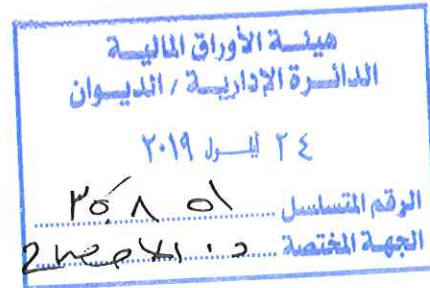 هيئة الأوراق المالية
الدائرة الإدارية / الديوان
٢٤ أيلول ٢٠١٩
الرقم المتسلسل
الجهة المختصة